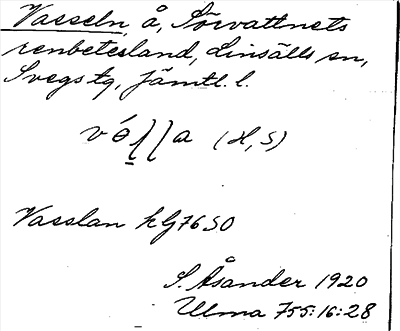 Vasseln, å, Sörvattnets
renbetesland, Linsälls sn,
Svegs tg, Jämtl. l.
(H, S)
Vasslan kG76SO
S. Åsander 1920
Ulma 755:16:28